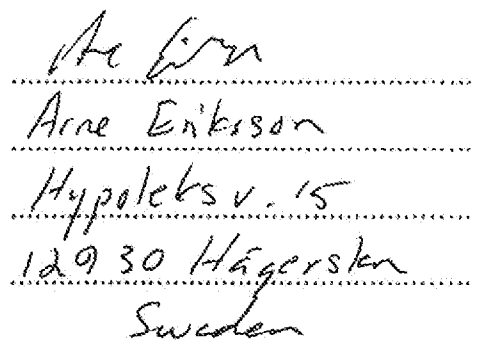 Arne Eriksson
Hypoteksv. 15
12930 Hägerstn
Sweden